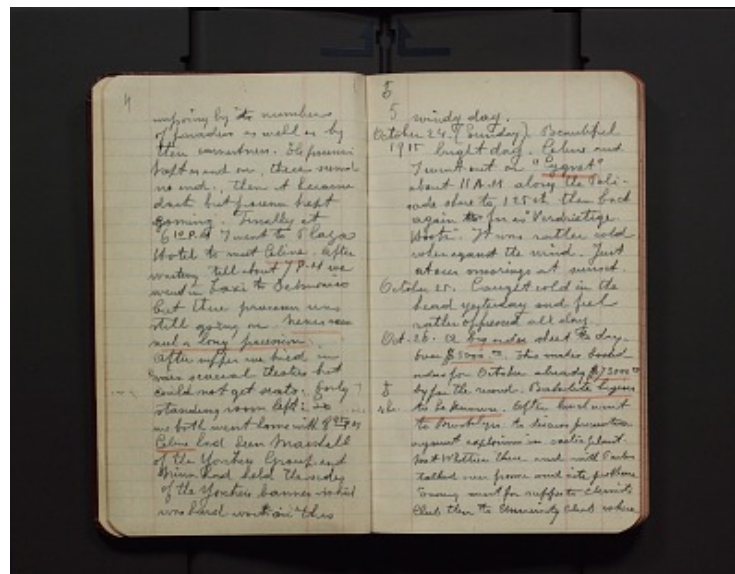 4
imposing by its numbers
of paraders as well as by
their earnestness. The procession
kept on and on, there seemed
no end, then it became
dark but procession kept
coming. Finally at
6 10 P.M I went to Plaza
Hotel to meet Celine. After
waiting till about 7 P.M we
went in taxi to Delmonico
but there procession was
still going on. Never saw
such a long procession.
After supper we tried in
several theatres but
could not get seats. Only
standing room left. So
we both went home with
Celine had seen Marshall
of the Yonkers Group and
Nina had held the sides
of the Yonkers banner which
was hard work in this
5
5 windy day.
October 24. (Sunday). Beautiful
1915 bright day. Celine and
I went out on "Cygnet"
about 11 A.M along the Pali-
sade shore to 125th then back
again as far as "Verdrietige
Hook". It was rather cold
when against the wind. Just
at our moorings at sunset.
October 25. Caught cold in the
head yesterday and feel
rather oppressed all day.
Oct. 26. A big order sheet to day
over $5000.00. This makes booked
orders for October already $73000.00
by far the record. Bakelite begins
to be known. After lunch went
to Brooklyn to discuss prevention
against explosions in plant.
Met Whittier there and with
talked over and problems
evening went for supper to Chemists
Club then to University Club where